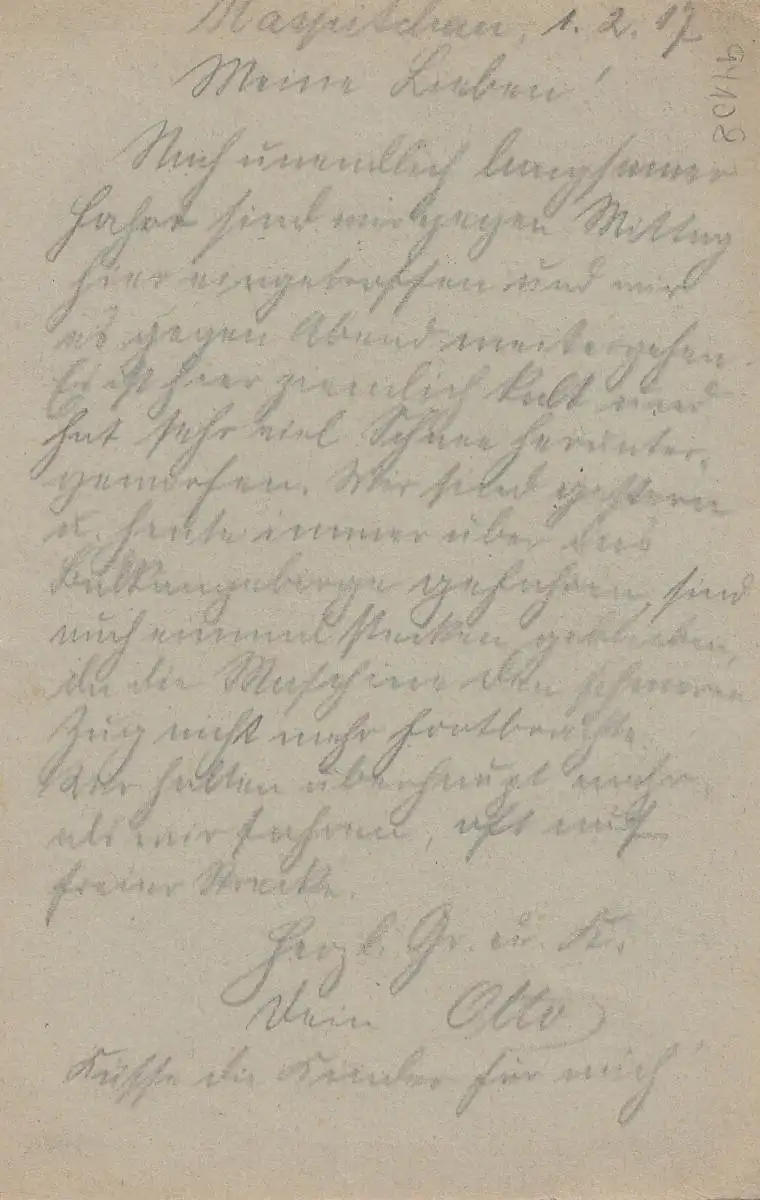 1. 2. 17
94108
Meine Lieben!
Nach unendlich langsamer
Fahrt sind wir gegen Mittag
hier eingetroffen und wird
es gegen Abend weitergehen.
Es ist hier ziemlich kalt und
hat sehr viel Schnee herunter-
geworfen. Wir sind gestern
u. heute immer über das
Balkangebirge gefahren, sind
auch einmal stecken geblieben,
da die Maschine den schweren
Zug nicht mehr fortbrachte.
Wir halten überhaupt mehr,
als wir fahren, oft auf
freier Strecke.
Herzl. Gr. u. K.
Dein Otto
Küsse die Kinder für mich!